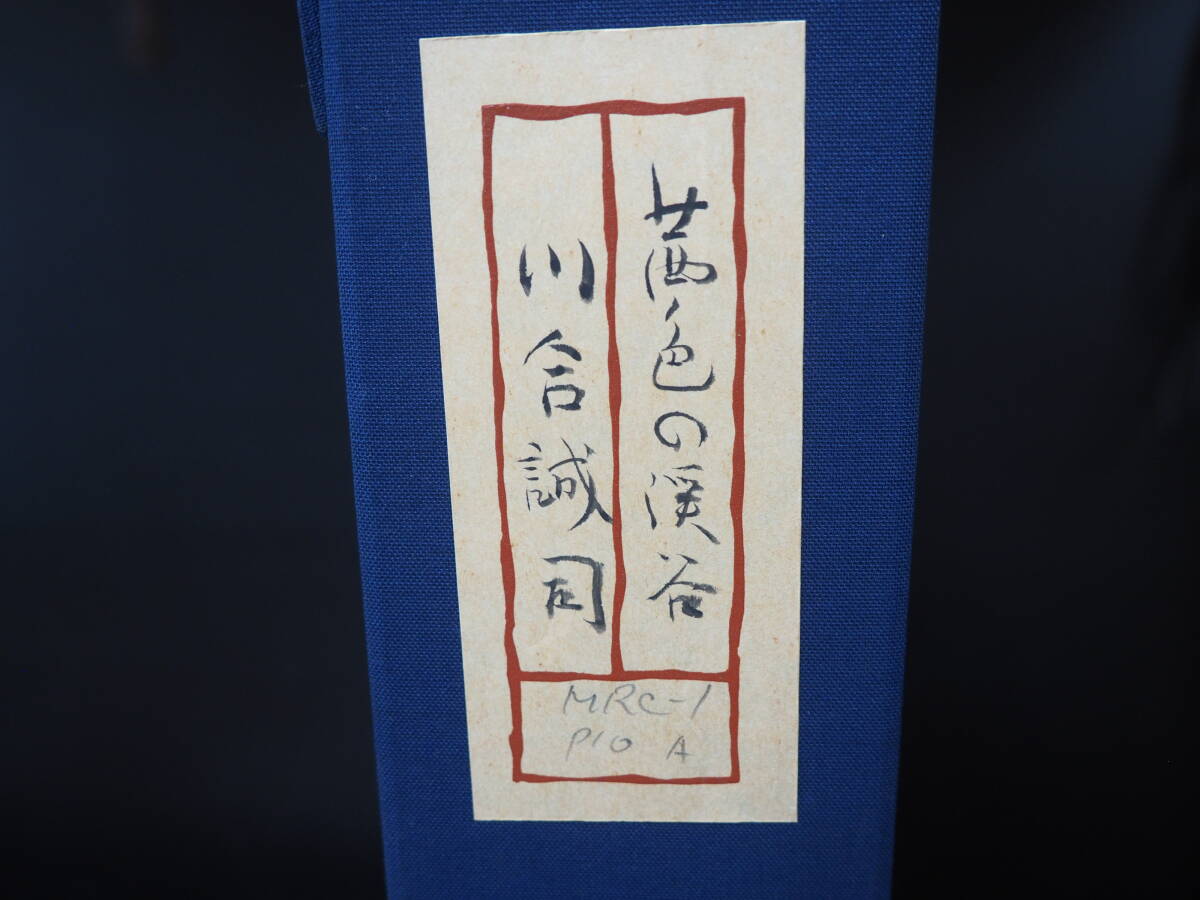 茜色の渓谷
川合誠司
MRC-1
P10 A